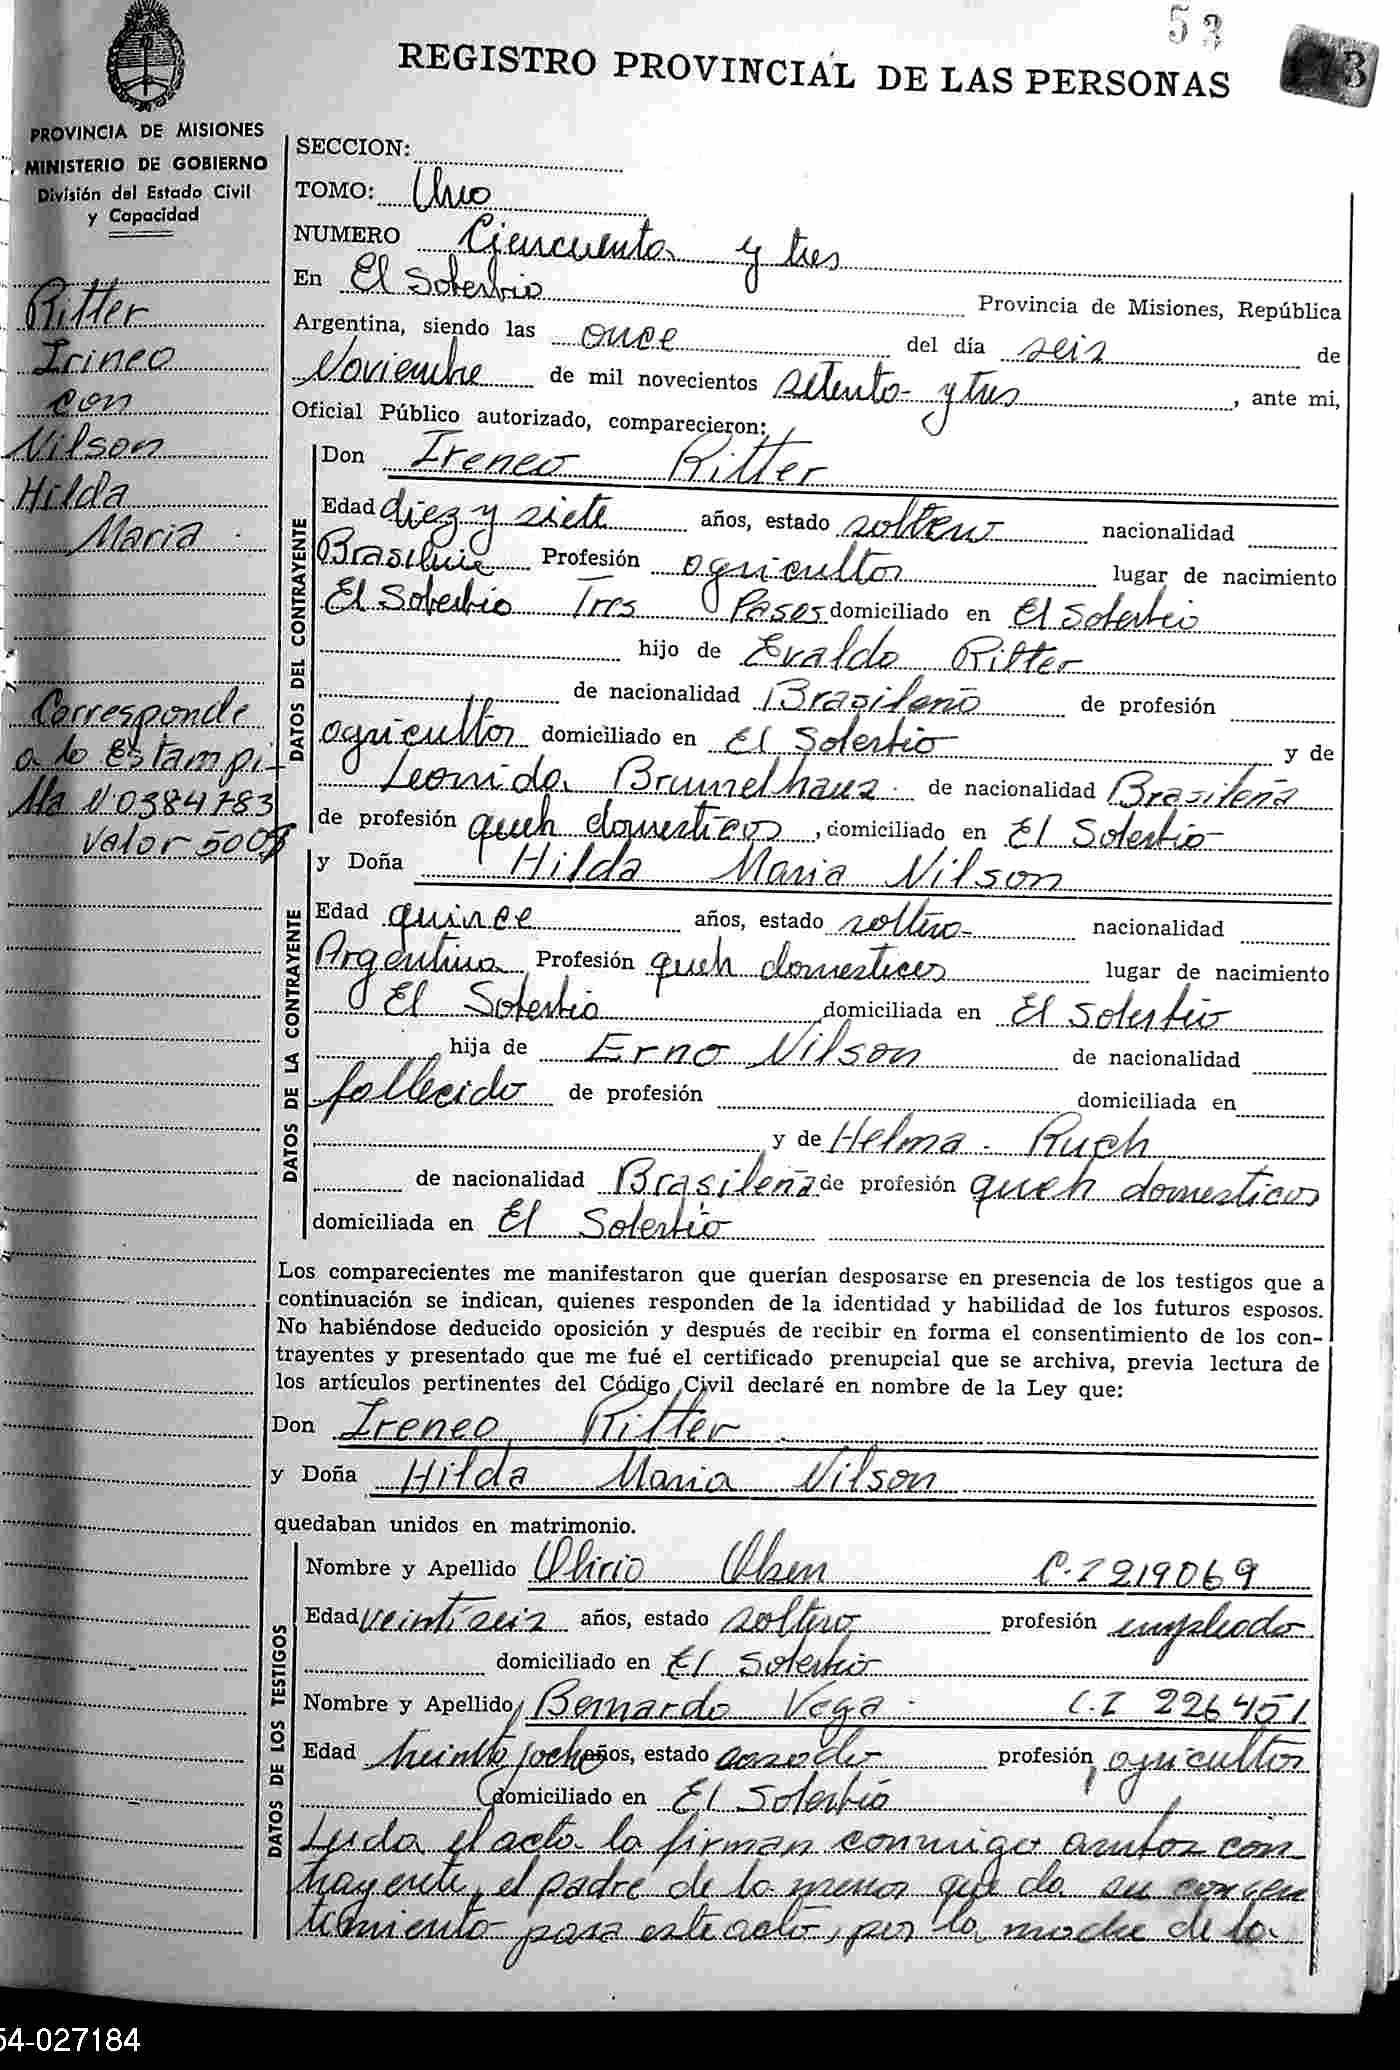 53
3
REGISTRO PROVINCIAL DE LAS PERSONAS
PROVINCIA DE MISIONES
MINISTERIO DE GOBIERNO
División del Estado Civil
y Capacidad
Ritter
Irineo
con
Nilson
Hilda
Maria
Corresponde
a la Estampi-
lla N 0384783
valor 500$
SECCION:
TOMO: Uno
NUMERO Ciencuenta y tres
En El Soberbio Provincia de Misiones, República
Argentina, siendo las once del día seis de
Noviembre de mil novecientos setenta y tres, ante mi,
Oficial Público autorizado, comparecieron:
DATOS DEL CONTRAYENTE
Don Ireneo Ritter
Edad diez y siete años, estado soltero nacionalidad
Profesión agricultor lugar de nacimiento
El Soberbio Tres Pasos domiciliado en El Soberbio
hijo de Evaldo Ritter
de nacionalidad Brasileño de profesión
agricultor domiciliado en El Soberbio y de
Leonida de nacionalidad Brasileña
de profesión queh domesticos, domiciliado en El Soberbio
y Doña Hilda Maria Nilson
DATOS DE LA CONTRAYENTE
Edad quince años, estado soltera nacionalidad
Argentina Profesión queh domesticos lugar de nacimiento
El Soberbio domiciliada en El Soberbio
hija de Erno Nilson de nacionalidad
fallecido de profesión domiciliada en
y de Helma Ruch
de nacionalidad Brasileña de profesión queh domesticos
domiciliada en El Soberbio
Los comparecientes me manifestaron que querían desposarse en presencia de los testigos que a
continuación se indican, quienes responden de la identidad y habilidad de los futuros esposos.
No habiéndose deducido oposición y después de recibir en forma el consentimiento de los con-
trayentes y presentado que me fué el certificado prenupcial que se archiva, previa lectura de
los artículos pertinentes del Código Civil declaré en nombre de la Ley que:
Don Ireneo Ritter
y Doña Hilda Maria Nilson
quedaban unidos en matrimonio.
DATOS DE LOS TESTIGOS
Nombre y Apellido Olsen C.I 219069
Edad veintiseis años, estado soltero profesión empleado
domiciliado en El Soberbio
Nombre y Apellido Bernardo Vega C.I 226451
Edad treinta y ocho años, estado casado profesión agricultor
domiciliado en El Soberbio
Leida el acta la firman conmigo ambos con
trayente, el padre de la menor que da su consen
timiento para este acto, por la madre de la
54-027184